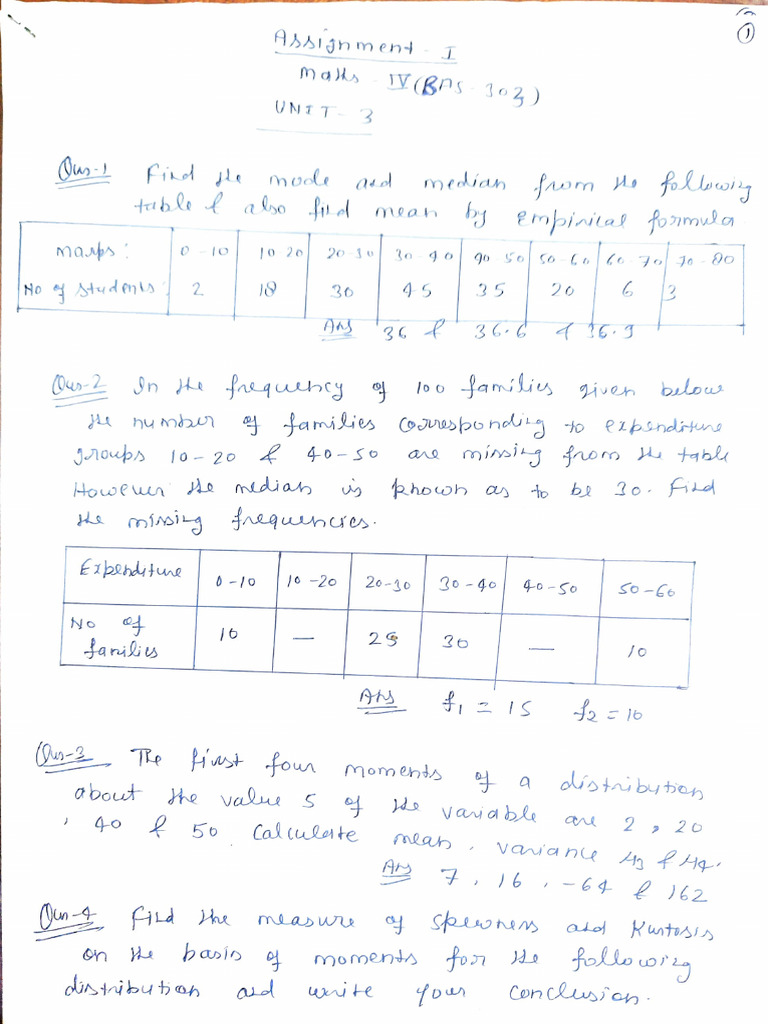 1
Assignment - I
Maths - IV (BAS - 303)
UNIT - 3
Ques-1 Find the mode and median from the following
table & also find mean by empirical formula
Marks: 0-10 10-20 20-30 30-40 40-50 50-60 60-70 70-80
No of students: 2 18 30 45 35 20 6 3
Ans 36 & 36.6 & 36.9
Ques-2 In the frequency of 100 families given below
the number of families corresponding to expenditure
groups 10-20 & 40-50 are missing from the table
However the median is known as to be 30. Find
the missing frequencies.
Expenditure 0-10 10-20 20-30 30-40 40-50 50-60
No of 10 — 25 30 — 10
families
Ans f1 = 15 f2 = 10
Ques-3 The first four moments of a distribution
about the value 5 of the variable are 2, 20
, 40 & 50. Calculate mean, variance μ3 & μ4.
Ans 7, 16, -64 & 162
Ques-4 Find the measure of skewness and Kurtosis
on the basis of moments for the following
distribution and write your conclusion.